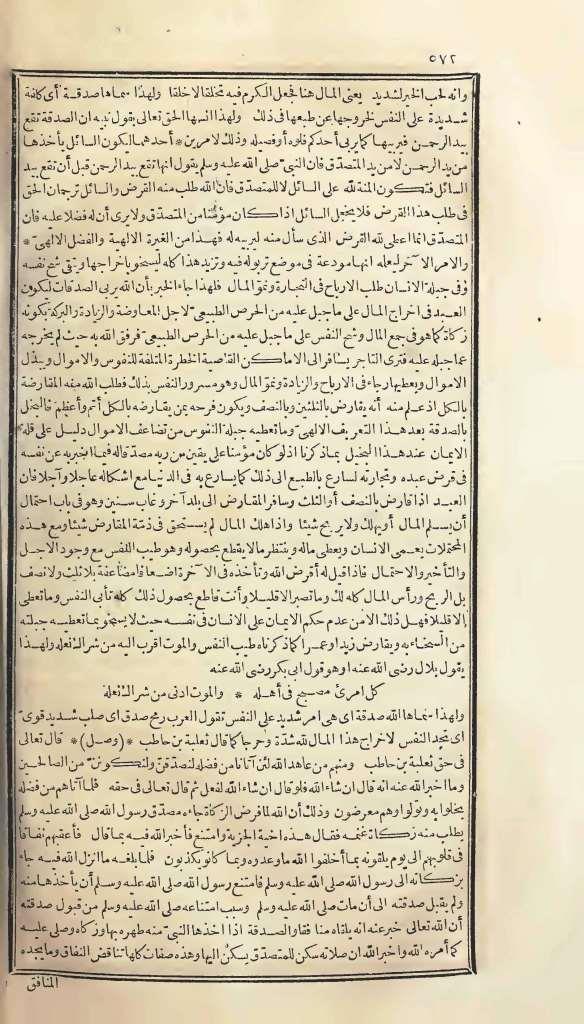 ٥٧٢
وانه لحب الخير لشديد يعنى المال هنا فجعل الكرم فيه تخلقا لا خلقا ولهذا سماها صدقة أى كلفة
شديدة على النفس لخروجها عن طبعها فى ذلك ولهذا آنسها الحق تعالى بقول نبيه ان الصدقة تقع
بيد الرحمن فيربيها كما يربى أحدكم فلوه أو فصيله وذلك لامرين * أحدهما ليكون السائل يأخذها
من يد الرحمن لا من يد المتصدّق فان النبىّ صلى الله عليه وسلم يقول انها تقع بيد الرحمن قبل أن تقع بيد
السائل فتكون المنة لله على السائل لا للمتصدّق فان الله طلب منه القرض والسائل ترجمان الحق
فى طلب هذا القرض فلا يخجل السائل اذا كان مؤمنا من المتصدّق ولا يرى أن له فضلا عليه فان
المتصدّق انما أعطى لله القرض الذى سأل منه ليربيه له فهذا من الغيرة الالهية والفضل الالهىّ *
والامر الآخر ليعلمه انها مودعة فى موضع تربو له فيه وتزيد هذا كله ليسخو باخراجها ويتقى شح نفسه
وفى جبلة الانسان طلب الارباح فى التجارة ونموّ المال فلهذا جاء الخبر بأن الله يربى الصدقات ليكون
العبد فى اخراج المال على ما جبل عليه من الحرص الطبيعىّ لاجل المعاوضة والزيادة والبركة بكونه
زكاة كما هو فى جمع المال وشح النفس على ما جبل عليه من الحرص الطبيعىّ فرفق الله به حيث لم يخرجه
عما جبله عليه فترى التاجر يسافر الى الاماكن القاصية الخطرة المتلفة للنفوس والاموال ويبذل
الاموال ويعطيها رجاء فى الارباح والزيادة ونموّ المال وهو مسرور النفس بذلك فطلب الله منه المقارضة
بالكل اذ علم منه أنه يقارض بالثلثين وبالنصف ويكون فرحه بمن يقارضه بالكل أتم وأعظم فالبخل
بالصدقة بعد هذا التعريف الالهىّ وما تعطيه جبلة النفوس من تضاعف الاموال دليل على قلة
الايمان عند هذا البخيل بما ذكرنا اذ لو كان مؤمنا على يقين من ربه مصدّقا له فيما أخبر به عن نفسه
فى قرض عبده وتجارته لسارع بالطبع الى ذلك كما يسارع به فى الدنيا مع اشكاله عاجلا وآجلا فان
العبد اذا قارض بالنصف أو الثلث وسافر المقارض الى بلد آخر وغاب سنين وهو فى باب احتمال
أن يسلم المال أو يهلك ولا يربح شيئا واذا هلك المال لم يستحق فى ذمّة المقارض شيئا ومع هذه
المحتملات يعمى الانسان ويعطى ماله وينتظر مالا يقطع بحصوله وهو طيب النفس مع وجود الاجل
والتأخير والاحتمال فاذا قيل له أقرض الله وتأخذه فى الآخرة اضعافا مضاعفة بلا ثلث ولا نصف
بل الربح ورأس المال كله لك وما تصبر الا قليلا وأنت قاطع بحصول ذلك كله تأبى النفس وما تعطى
الا قليلا فهل ذلك الا من عدم حكم الايمان على الانسان فى نفسه حيث لا يسخو بما تعطيه جبلته
من السخاء به ويقارض زيدا وعمرا كما ذكرناه طيب النفس والموت اقرب اليه من شراك نعله ولهذا
يقول بلال رضى الله عنه أو هو قول أبى بكر رضى الله عنه
كل امرئ مصبح فى أهله * والموت ادنى من شراك نعله
ولهذا سماها الله صدقة اى هى امر شديد على النفس تقول العرب رمح صدق اى صلب شديد قوىّ
اى تجد النفس لاخراج هذا المال لله شدّة وحرجا كما قال ثعلبة بن حاطب * (وصل) * قال تعالى
فى حق ثعلبة بن حاطب ومنهم من عاهد الله لئن آتانا من فضله لنصدّقنّ ولنكوننّ من الصالحين
وما اخبر الله عنه انه قال ان شاء الله فلو قال ان شاء الله لفعل ثم قال تعالى فى حقه فلما آتاهم من فضله
بخلوا به وتولوا وهم معرضون وذلك أن الله لما فرض الزكاة جاءه مصدّق رسول الله صلى الله عليه وسلم
يطلب منه زكاة غنمه فقال هذه اخية الجزية وامتنع فأخبر الله فيه بما قال فأعقبهم نفاقا
فى قلوبهم الى يوم يلقونه بما أخلفوا الله ما وعدوه وبما كانوا يكذبون فلما بلغه ما انزل الله فيه جاء
بزكاته الى رسول الله صلى الله عليه وسلم فامتنع رسول الله صلى الله عليه وسلم أن يأخذها منه
ولم يقبل صدقته الى أن مات صلى الله عليه وسلم وسبب امتناعه صلى الله عليه وسلم من قبول صدقته
أن الله تعالى خبر عنه انه يلقاه منافقا والصدقة اذا اخذها النبىّ منه طهره بها وزكاه وصلى عليه
كما أمره الله واخبر الله ان صلاته سكن للمتصدّق يسكن اليها وهذه صفات كلها تناقض النفاق وما يجده
المنافق